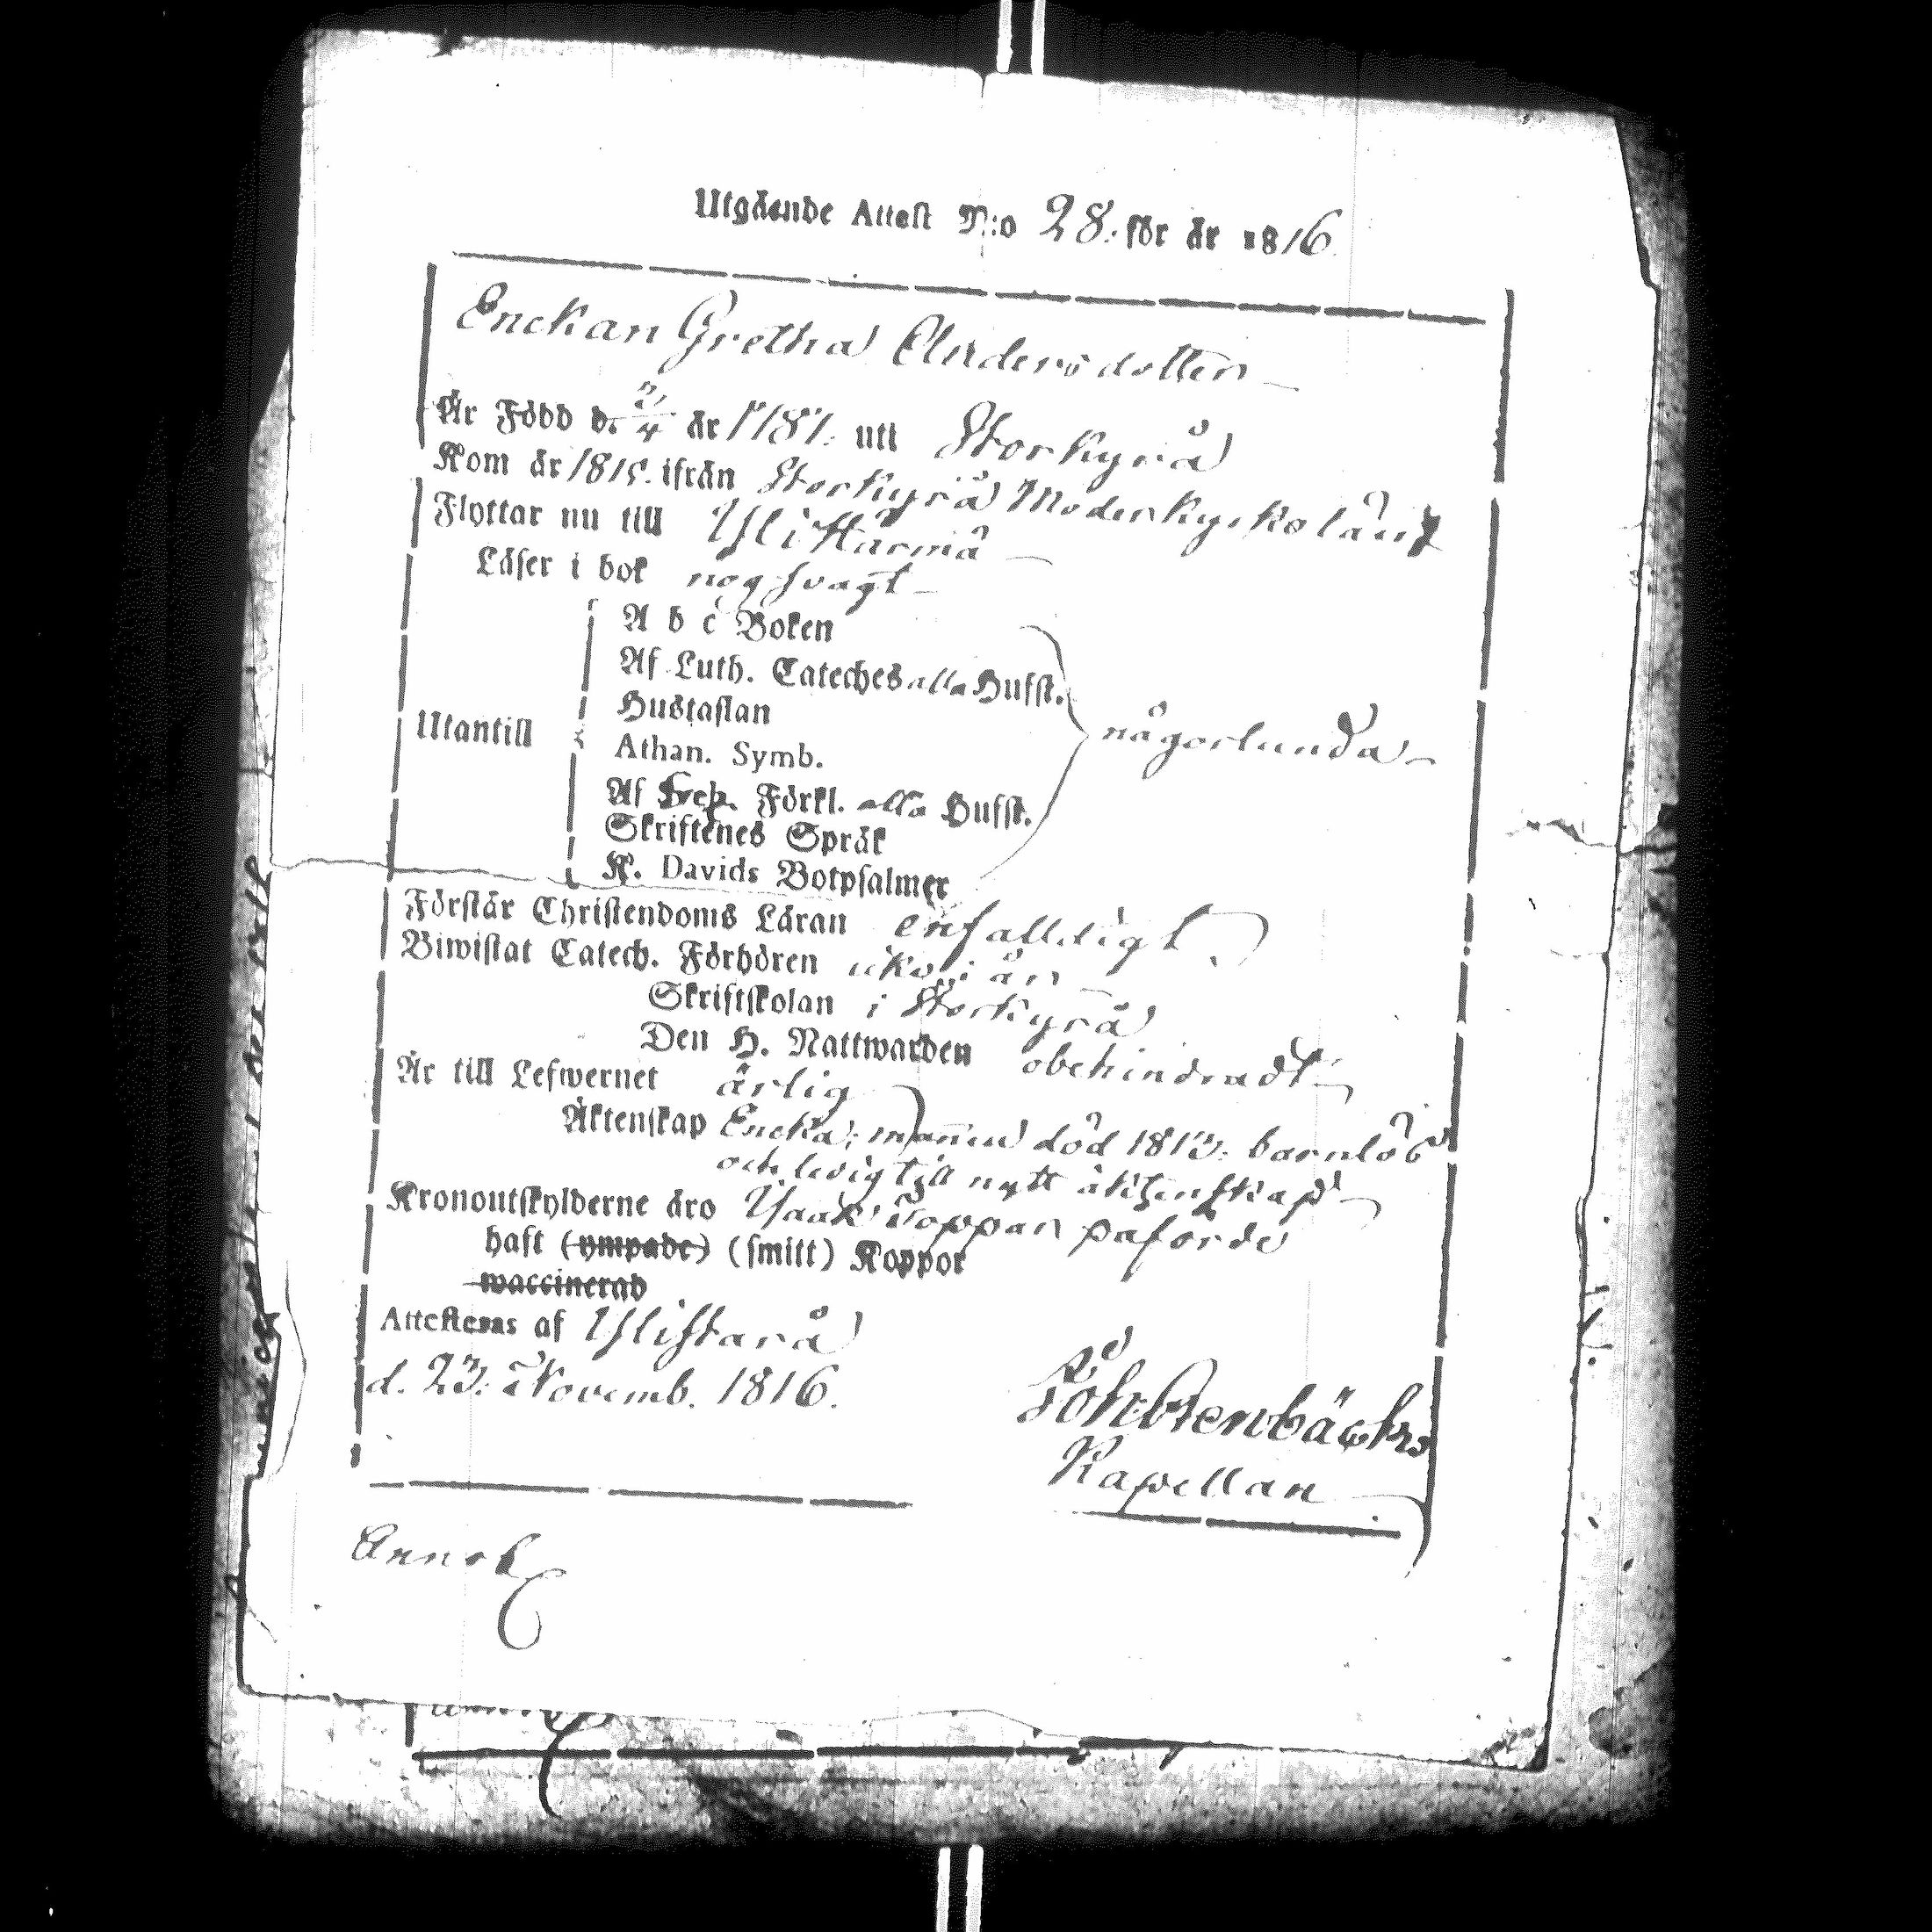 Utgående Attest N:o 28. för år 1816.
Enckan Gretha Andersdotter
Är Född d. 2/4 år 1781. uti Storkyrå
Kom år 1815. ifrån Storkyrå Moderkyrko
Flyttar nu till Ylistarå
Läser i bok nog svagt
A b c Boken
Af Luth. Cateches alla Hufst.
Hustaflan
Utantill
Athan. Symb.
någorlunda
Af Sveb. Förkl. alla Hufst.
Skriftenes Språk
K. Davids Botpsalmer
Förstår Christendoms Läran enfalldigt
Biwistat Catech. Förhören
Skriftskolan i Storkyrå
Den H. Nattwarden obehindradt
Är till Lefwernet ärlig
Äktenskap Encka; mannen död 1813. barnlös
och ledig till nytt äktenskap
Kronoutskylderne äro Isaak påförde
haft (ympade) (smitt) Koppor
waccinerad
Attesteras af Ylistarå
d. 23. Novemb. 1816.
Kapellan
Annot.